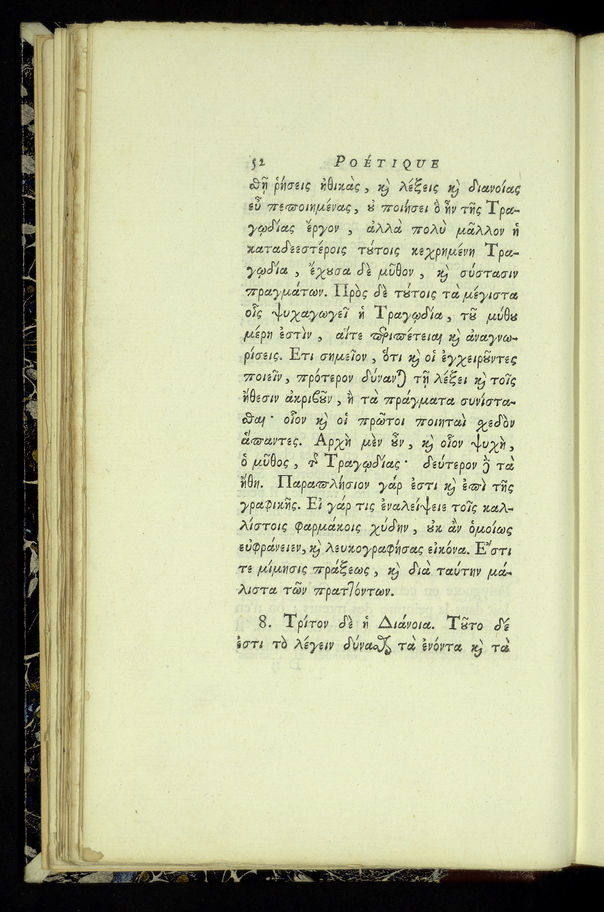 52 POÉTIQUE
θῇ ῥήσεις ἠθικὰς, καὶ λέξεις καὶ διανοίας
εὖ πεποιημένας, οὐ ποιήσει ὃ ἦν τῆς Τρα-
γῳδίας ἔργον, ἀλλὰ πολὺ μᾶλλον ἡ
καταδεεστέροις τούτοις κεχρημένη Τρα-
γῳδία, ἔχουσα δὲ μῦθον, καὶ σύστασιν
πραγμάτων. Πρὸς δὲ τούτοις τὰ μέγιστα
οἷς ψυχαγωγεῖ ἡ Τραγῳδία, τοῦ μύθου
μέρη ἐστὶν, αἵτε περιπέτειαι καὶ ἀναγνω-
ρίσεις. Ετι σημεῖον, ὅτι καὶ οἱ ἐγχειροῦντες
ποιεῖν, πρότερον δύνανται τῇ λέξει καὶ τοῖς
ἤθεσιν ἀκριβοῦν, ἢ τὰ πράγματα συνίστα-
σθαι· οἷον καὶ οἱ πρῶτοι ποιηταὶ σχεδὸν
ἅπαντες. Αρχὴ μὲν οὖν, καὶ οἷον ψυχὴ,
ὁ μῦθος, τῆς Τραγῳδίας· δεύτερον δὲ τὰ
ἤθη. Παραπλήσιον γάρ ἐστι καὶ ἐπὶ τῆς
γραφικῆς. Εἰ γάρ τις ἐναλείψειε τοῖς καλ-
λίστοις φαρμάκοις χύδην, οὐκ ἂν ὁμοίως
εὐφράνειεν, καὶ λευκογραφήσας εἰκόνα. Ἔστι
τε μίμησις πράξεως, καὶ διὰ ταύτην μά-
λιστα τῶν πραττόντων.
8. Τρίτον δὲ ἡ Διάνοια. Τοῦτο δέ
ἐστι τὸ λέγειν δύνασθαι τὰ ἐνόντα καὶ τὰ